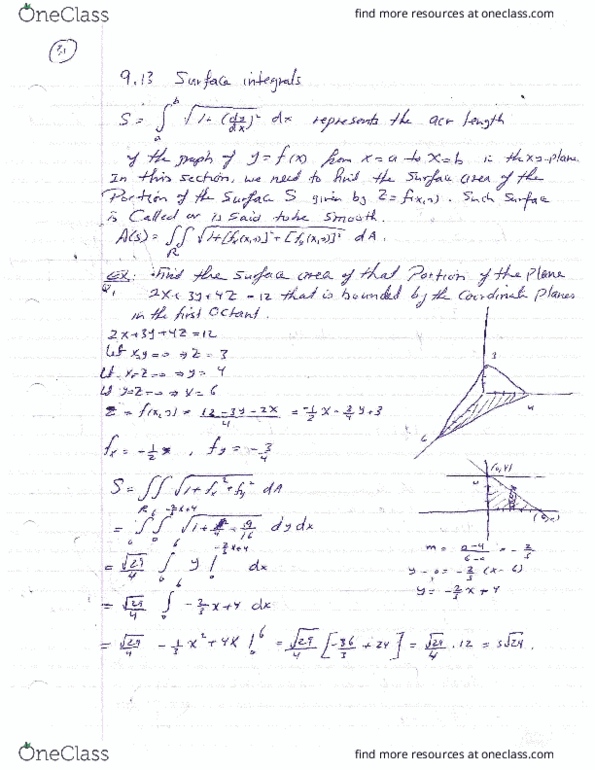 OneClass
find more resources at oneclass.com
31
9.13 Surface integrals
S = ∫_a^b √(1+(dy/dx)²) dx represents the acr length
of the graph of y=f(x) from x=a to x=b in the xy-plane.
In this section, we need to find the surface area of the
Portion of the Surface S given by Z=f(x,y). Such surface
is Called or is said to be smooth.
A(S) = ∫∫_R √(1+[fx(x,y)]²+[fy(x,y)]²) dA.
EX: Find the surface area of that Portion of the plane
2x+3y+4Z=12 that is bounded by the Coordinate planes
in the first Octant.
2x+3y+4Z=12
let x,y=0 ⇒ Z=3
let x=Z=0 ⇒ y=4
let y=Z=0 ⇒ x=6
Z = f(x,y) = (12-3y-2x)/4 = -1/2 x - 3/4 y + 3
fx = -1/2 , fy = -3/4
3
4
6
S = ∫∫_R √(1+fx²+fy²) dA
= ∫_0^6 ∫_0^(-2/3x+4) √(1+1/4+9/16) dy dx
= √29/4 ∫_0^6 y |_0^(-2/3x+4) dx
= √29/4 ∫_0^6 -2/3x+4 dx
(0,4)
m = (0-4)/(6-0) = -2/3
y-0 = -2/3 (x-6)
y = -2/3x+4
= √29/4 -1/3x²+4x |_0^6 = √29/4 [-36/3+24] = √29/4 · 12 = 3√29.
OneClass
find more resources at oneclass.com